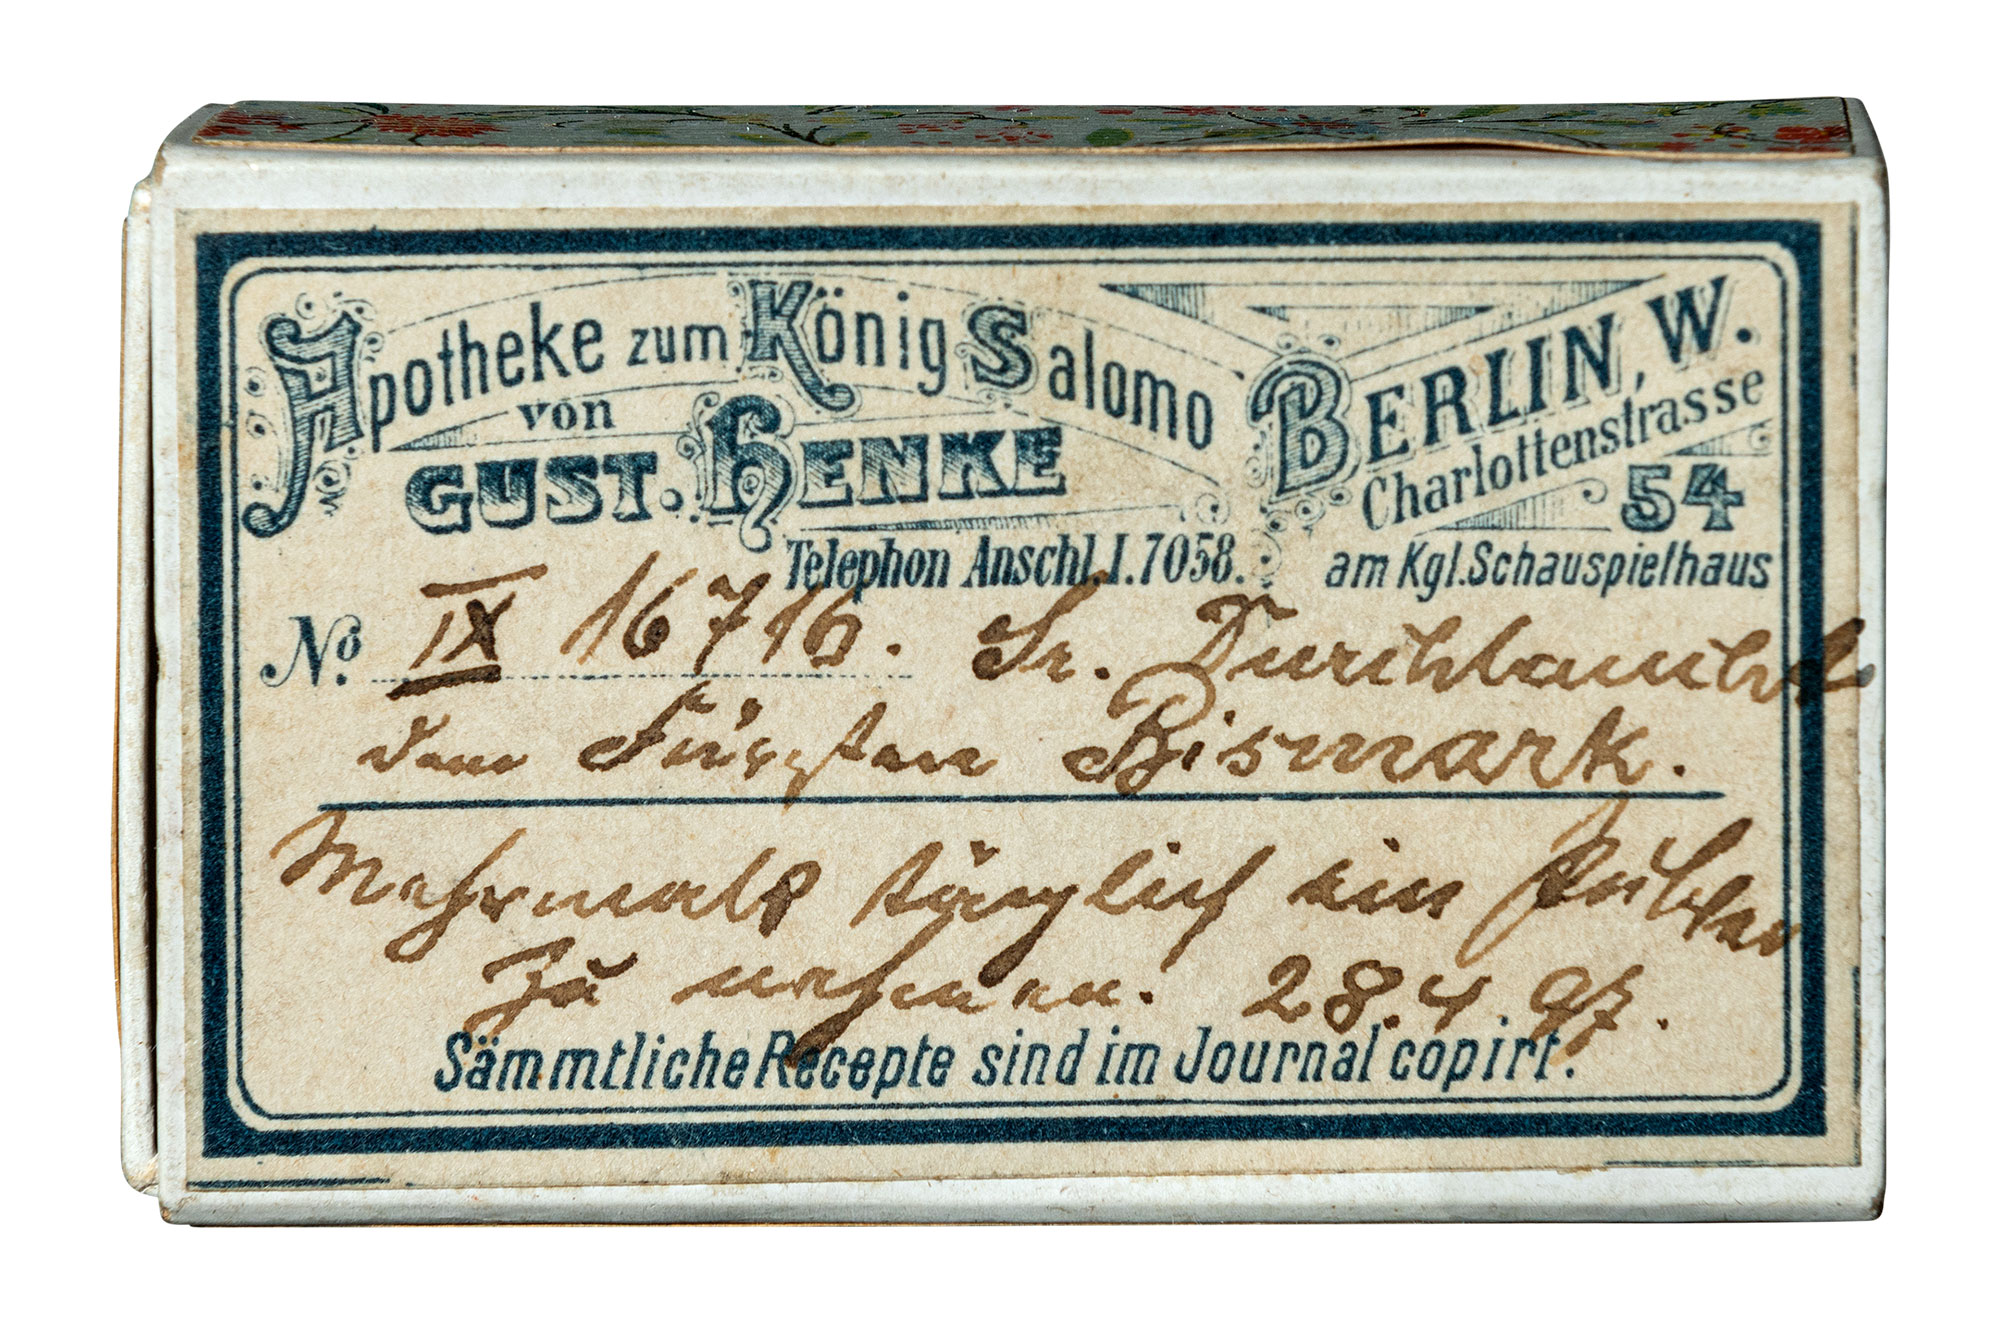 Apotheke zum König Salomo
von
GUST. HENKE
BERLIN, W.
Charlottenstrasse
54
Telephon Anschl. I. 7058.
am Kgl. Schauspielhaus
No. IX 16716. Sr. Durchlaucht
dem Fürsten Bismark.
Mehrmals täglich ein Pulver
zu nehmen. 28.4.97.
Sämmtliche Recepte sind im Journal copirt.